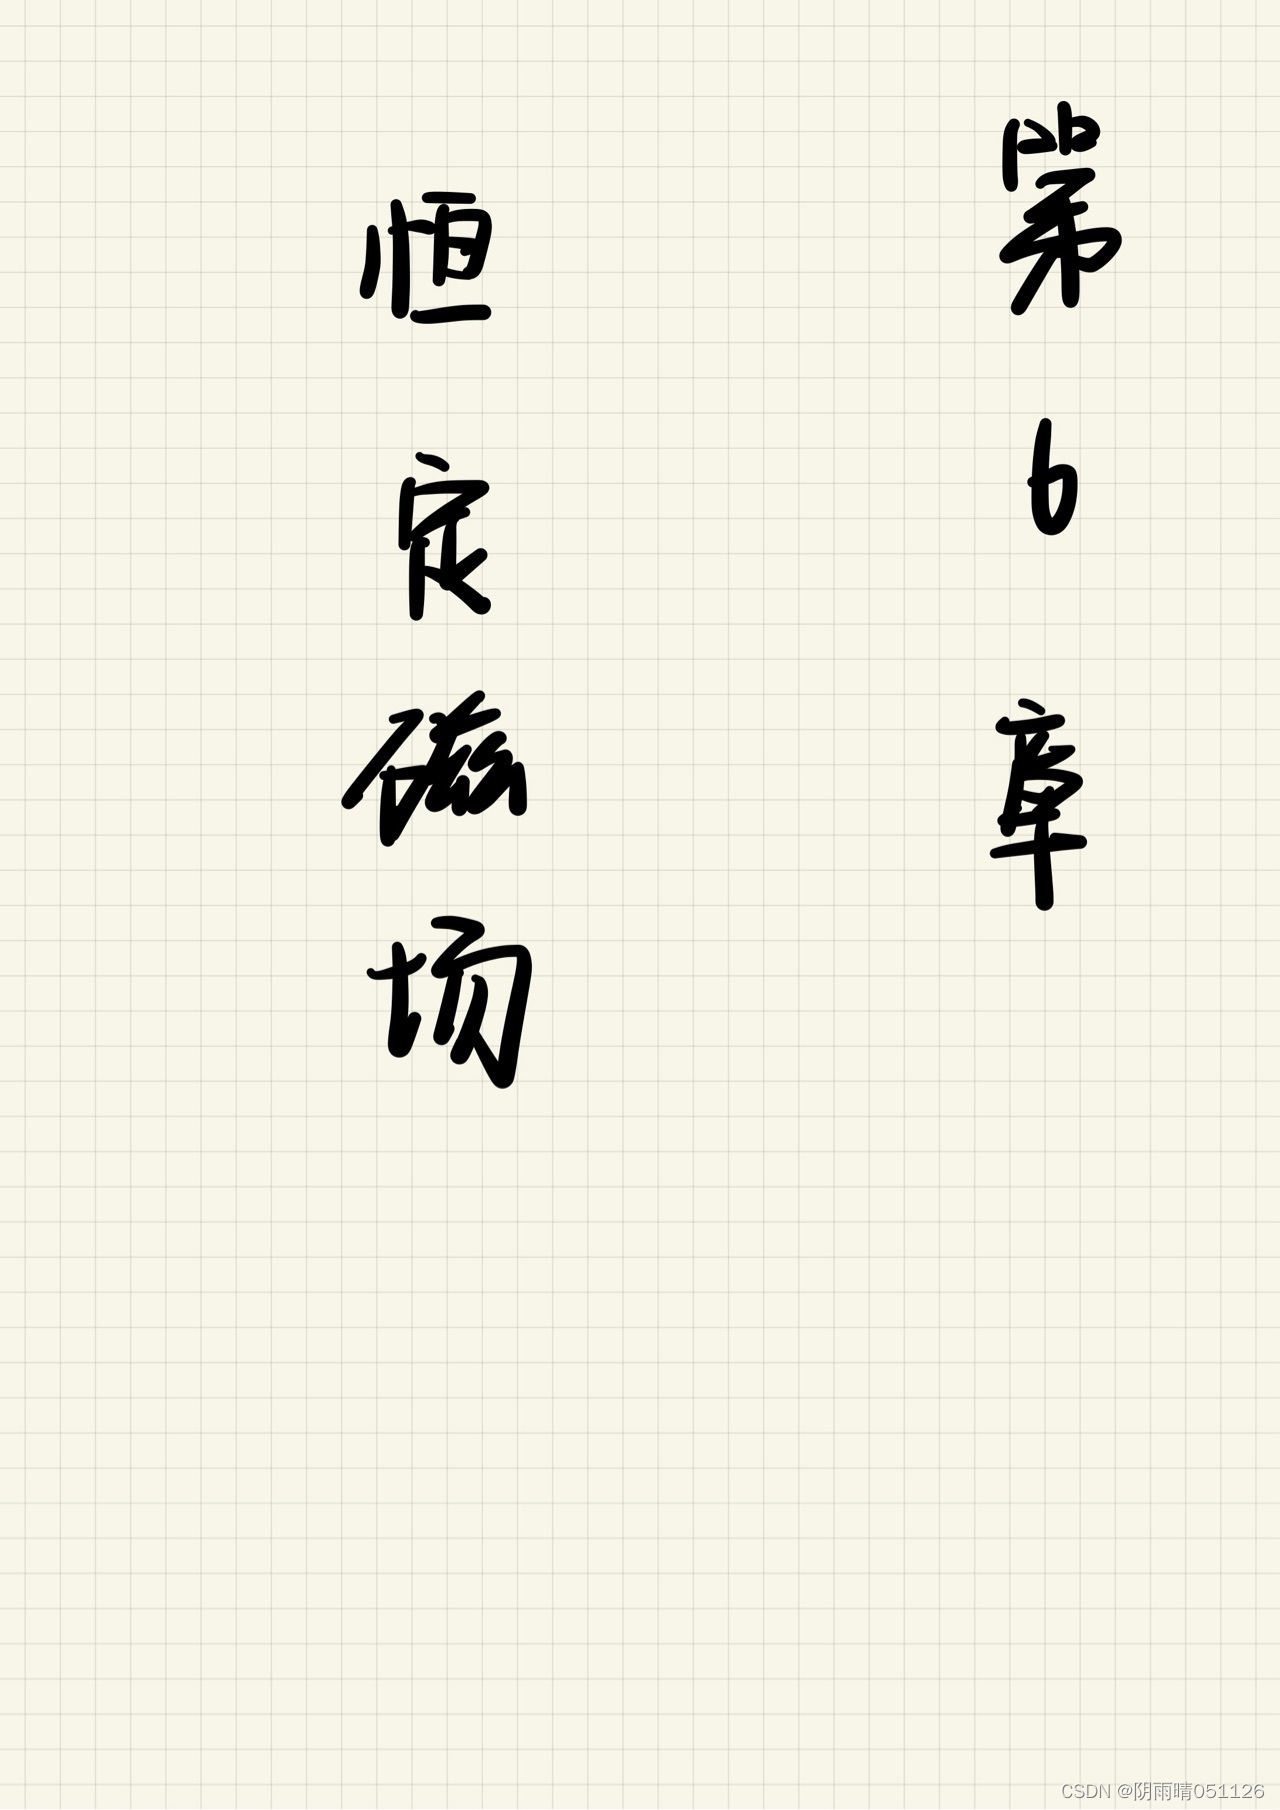 第6章
恒定磁场
CSDN @阴雨晴051126